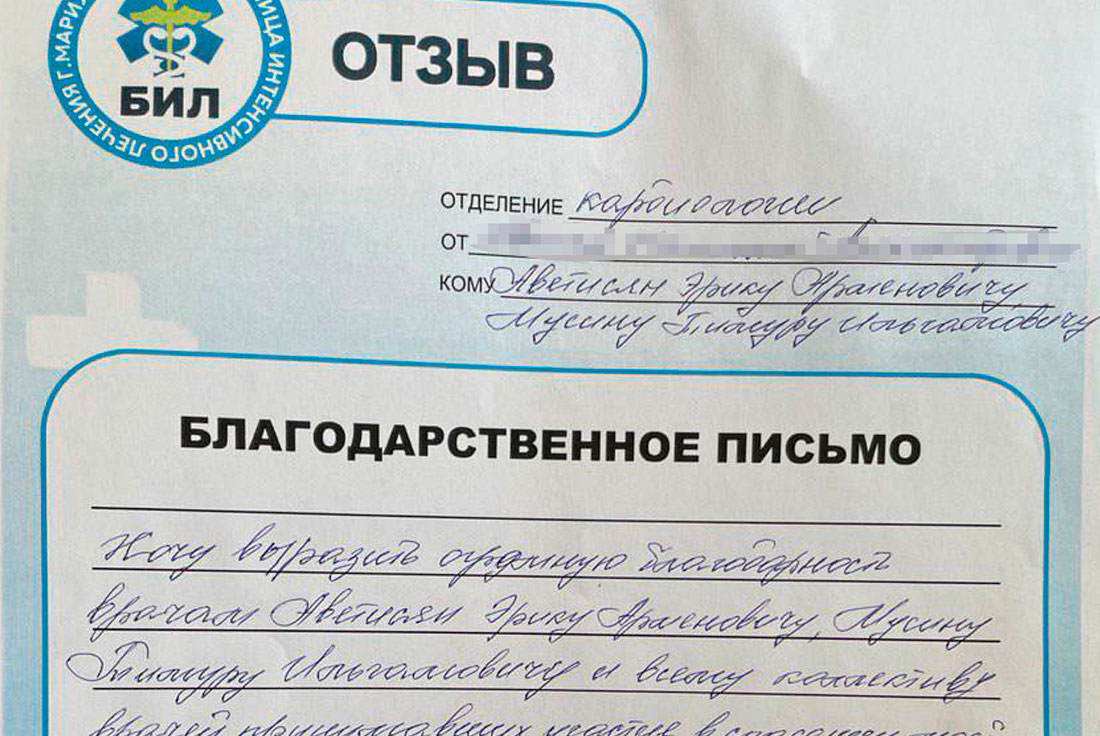 Г. МАРИ
ИЦА ИНТЕНСИВНОГО ЛЕЧЕНИЯ
БИЛ
ОТЗЫВ
ОТДЕЛЕНИЕ кардиологии
ОТ
КОМУ Аветисян Эрику Арменовичу,
Мусину Тимуру Ильгамовичу
БЛАГОДАРСТВЕННОЕ ПИСЬМО
Хочу выразить огромную благодарность
врачам Аветисян Эрику Арменовичу, Мусину
Тимуру Ильгамовичу и всему коллективу
врачей принимавших участие в спасении